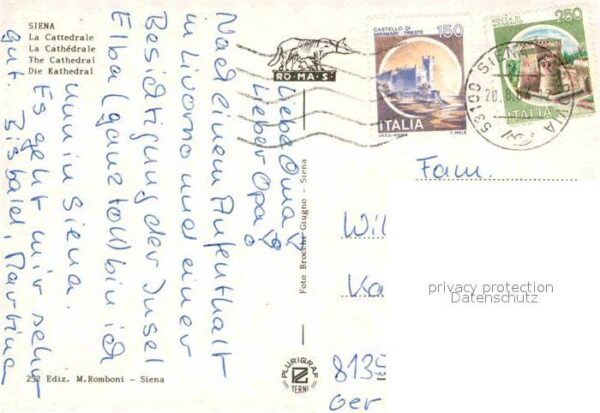 SIENA
La Cattedrale
La Cathédrale
The Cathedral
Die Kathedral
Liebe Oma,
Lieber Opa!
Nach einem Aufenthalt
in Livorno und einer
Besichtigung der Insel
Elba (ganz toll) bin ich
nun in Siena.
Es geht mir sehr
gut. Bis bald, Martina
252 Ediz. M. Romboni - Siena
Foto Brocchi Giugno - Siena
RO·MA·S·
PLURIGRAF
TERNI
CASTELLO DI
MIRAMARE TRIESTE
150
ITALIA
250
ROCCA DI
ITALIA
53100 SIENA
Fam.
Wil
Ka
8135
Ger
privacy protection
Datenschutz